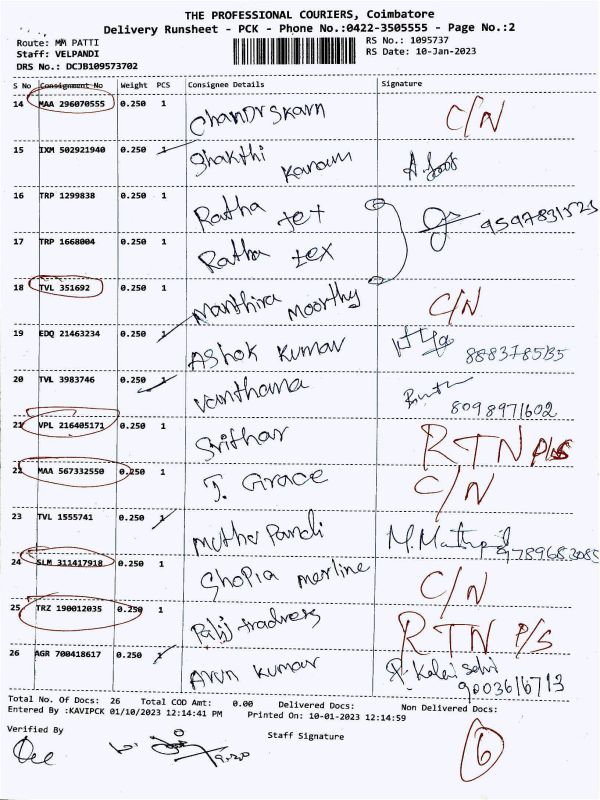 THE PROFESSIONAL COURIERS, Coimbatore
Delivery Runsheet - PCK - Phone No.:0422-3505555 - Page No.:2
Route: MM PATTI RS No.: 1095737
Staff: VELPANDI RS Date: 10-Jan-2023
DRS No.: DCJB109573702
S No Consignment No Weight PCS Consignee Details Signature
14 MAA 296070555 0.250 1 Chandrskarn C/N
15 IXM 502921940 0.250 1 Shakthi Karam
16 TRP 1299838 0.250 1 Ratha tex 9597831523
17 TRP 1668004 0.250 1 Ratha tex
18 TVL 351692 0.250 1 Manthira moorthy C/N
19 EDQ 21463234 0.250 1 Ashok Kumar 8883785135
20 TVL 3983746 0.250 1 Vanthana 8098971602
21 VPL 216405171 0.250 1 Srithar RTN P/S
22 MAA 567332550 0.250 1 J. Grace C/N
23 TVL 1555741 0.250 1 Muthu Pandi 9789683085
24 SLM 311417918 0.250 1 Shopia merline C/N
25 TRZ 190012035 0.250 1 tradress RTN P/S
26 AGR 700418617 0.250 1 Arun Kumar 9003616713
Total No. Of Docs: 26 Total COD Amt: 0.00 Delivered Docs: Non Delivered Docs:
Entered By :KAVIPCK 01/10/2023 12:14:41 PM Printed On: 10-01-2023 12:14:59
Verified By Staff Signature
6